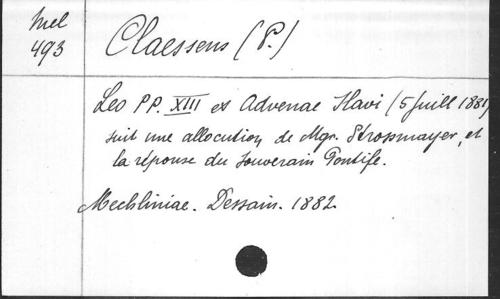 Mel
493
Claessens (P.)
Leo PP. XIII et Advenae Slavi (5 Juill 1881)
suit une allocution de Mgr. Strossmayer, et
la réponse du Souverain Pontife.
Mechliniae. Dessain. 1882